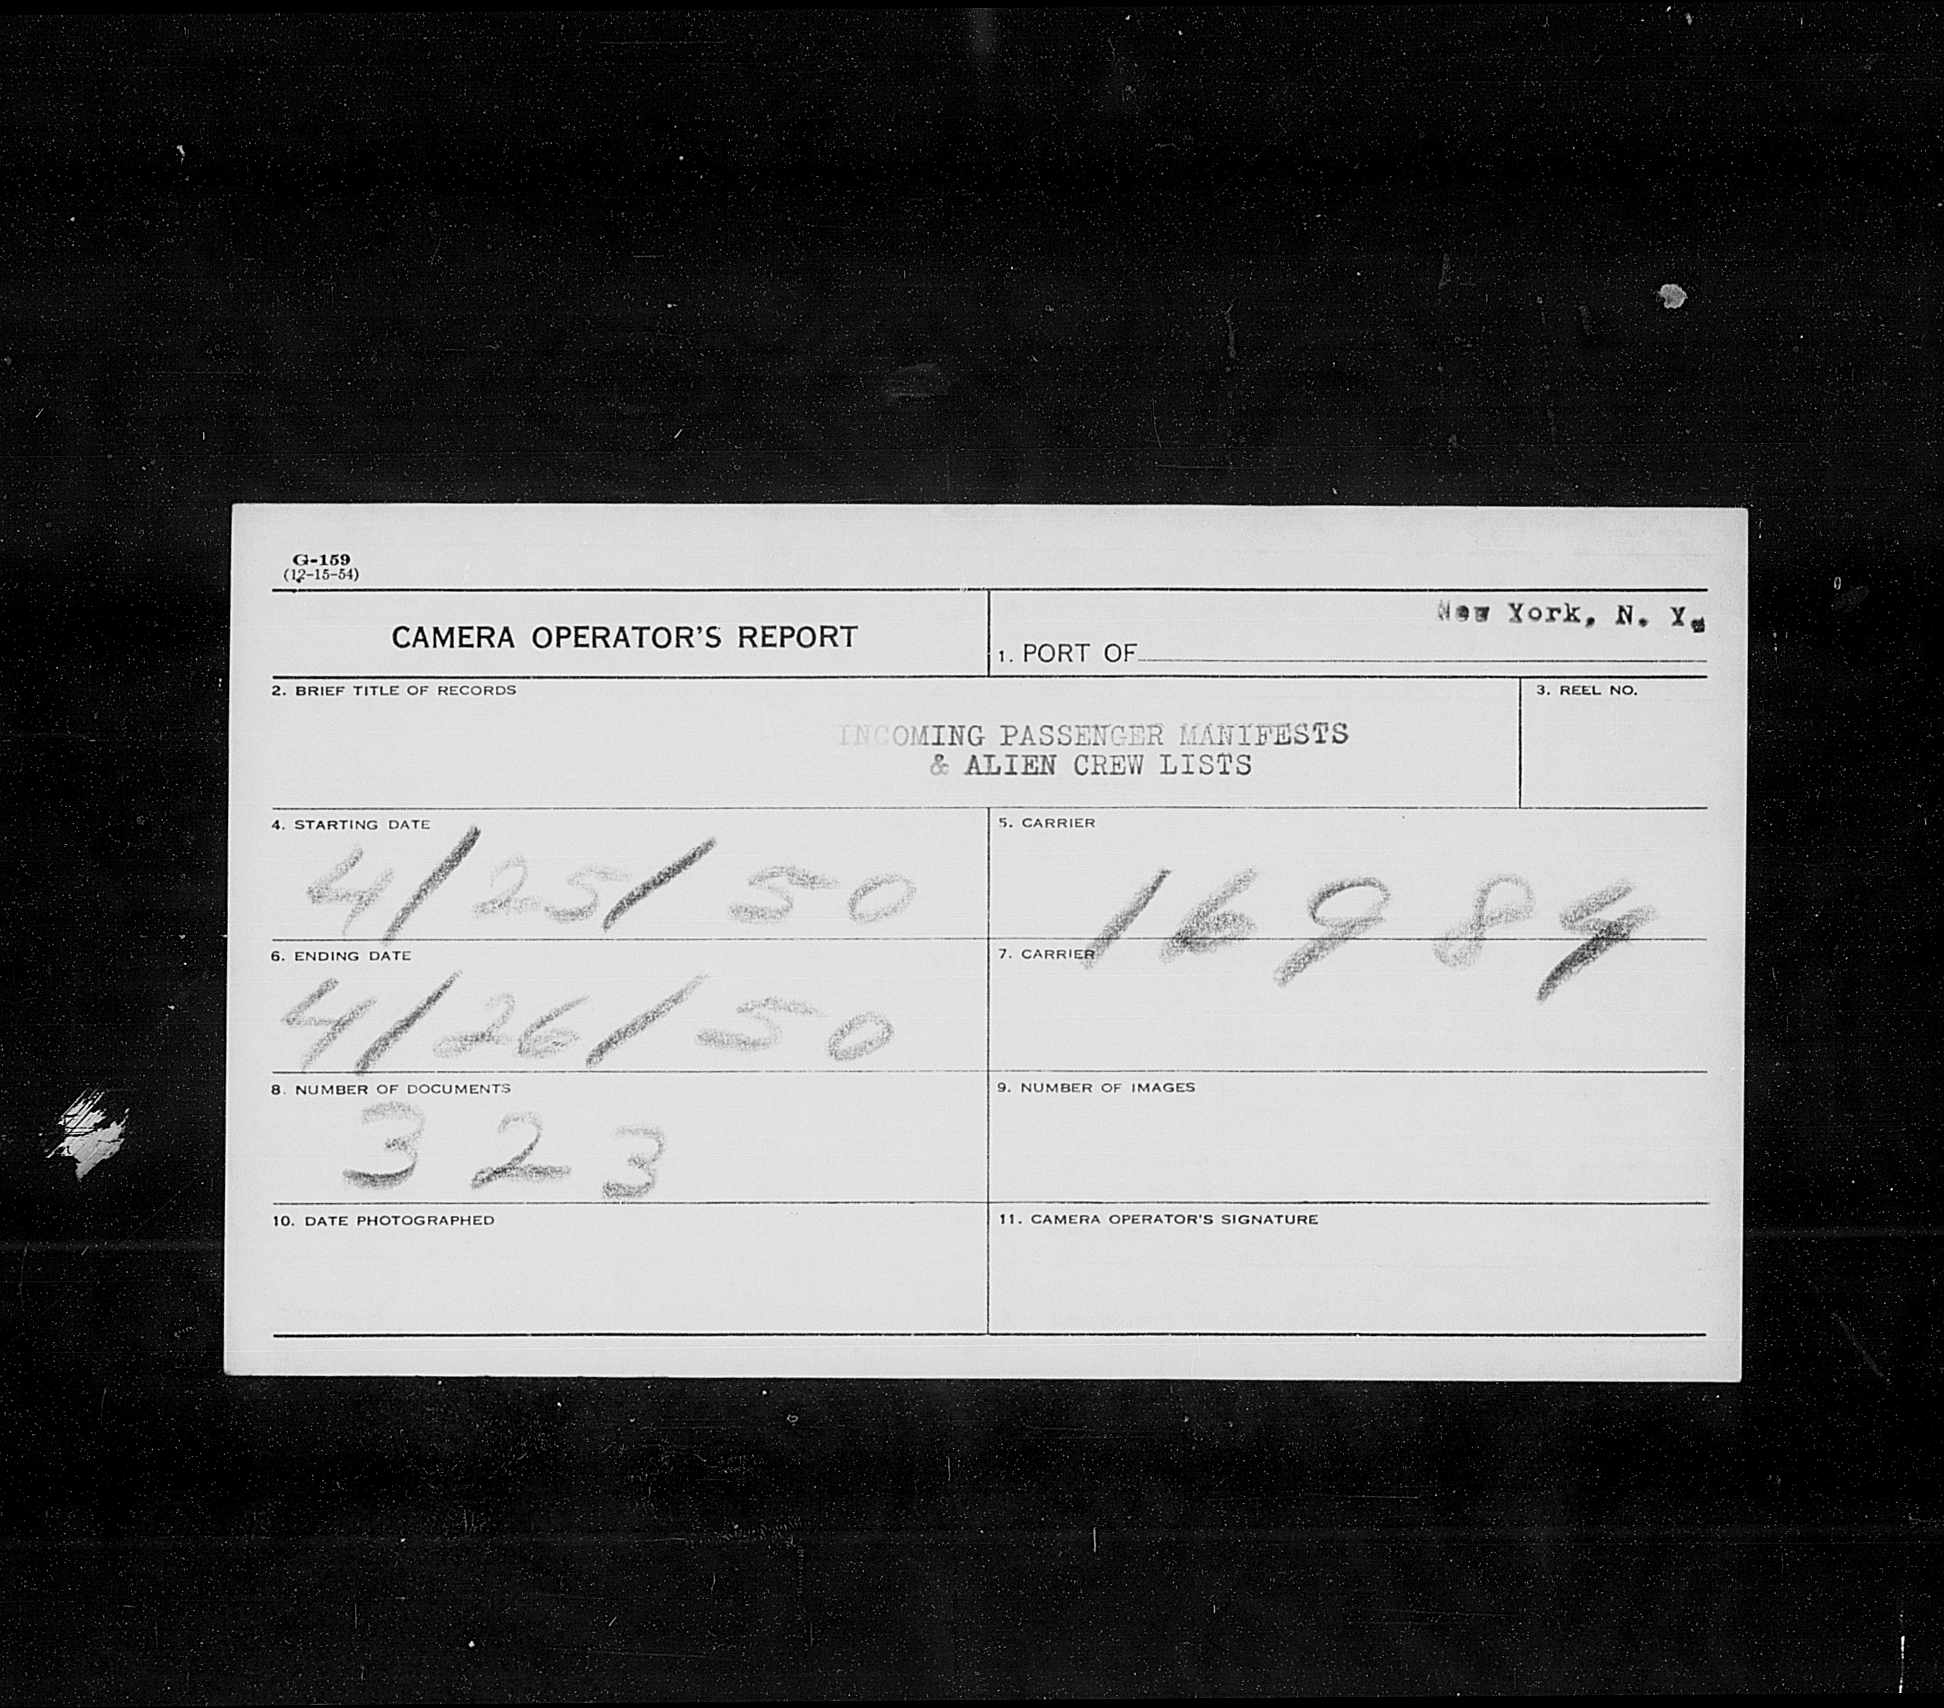 G-159
(12-15-54)
CAMERA OPERATOR'S REPORT
New York, N. Y.
1. PORT OF
2. BRIEF TITLE OF RECORDS
3. REEL NO.
INCOMING PASSENGER MANIFESTS
& ALIEN CREW LISTS
4. STARTING DATE
4/25/50
5. CARRIER
16984
6. ENDING DATE
4/26/50
7. CARRIER
8. NUMBER OF DOCUMENTS
323
9. NUMBER OF IMAGES
10. DATE PHOTOGRAPHED
11. CAMERA OPERATOR'S SIGNATURE